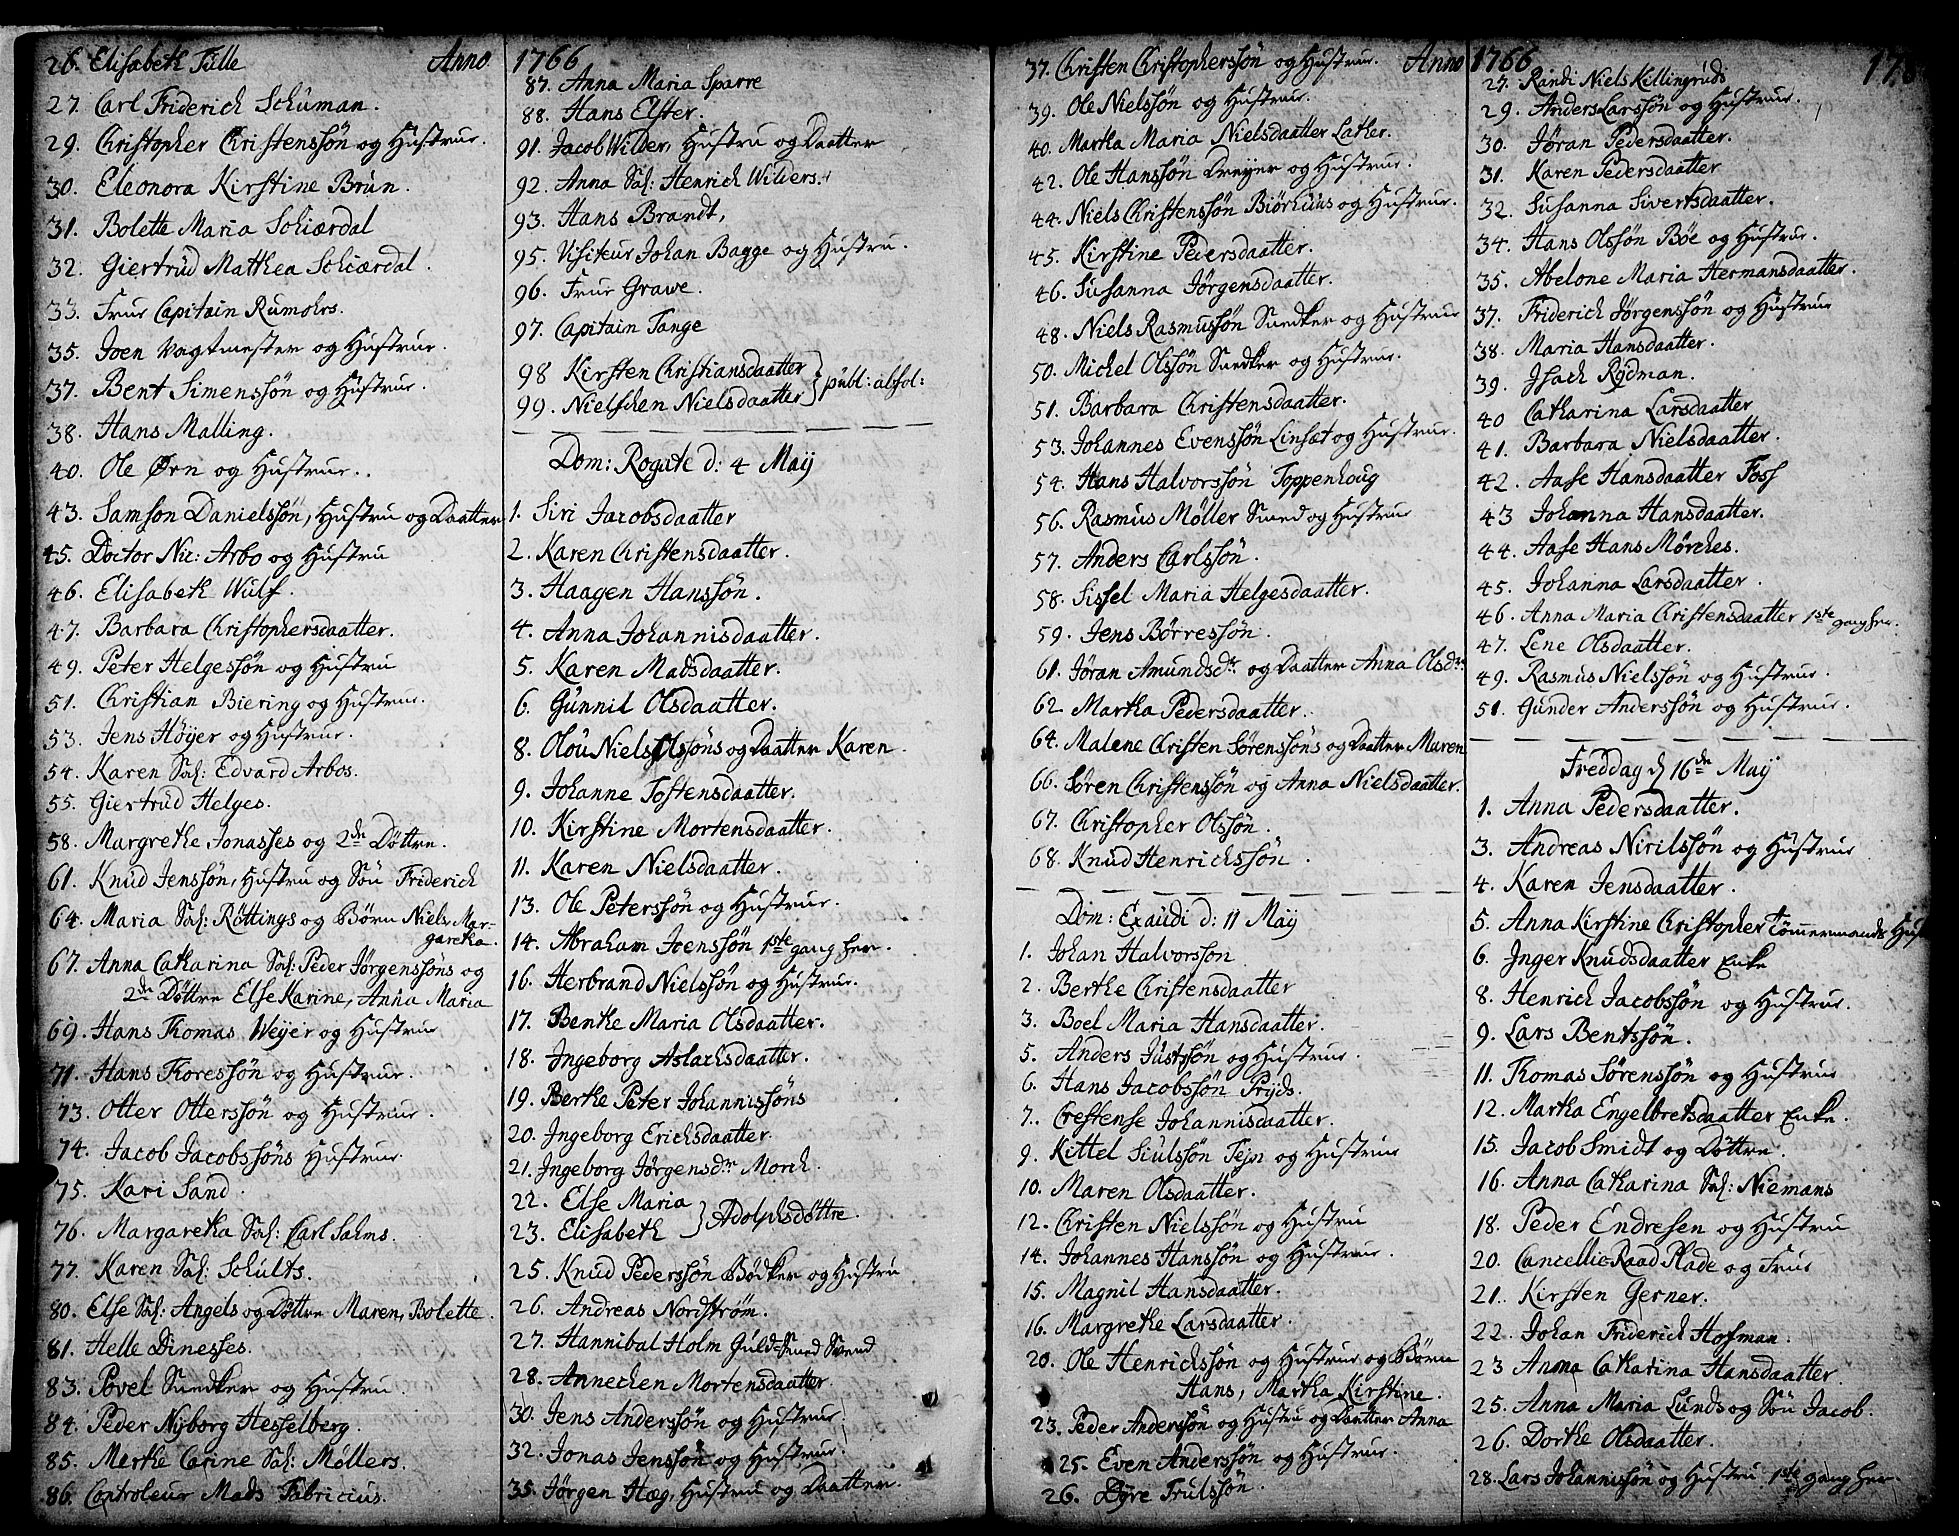 26. Elisabeth Tülle Anno
27. Carl Friderich Schüman.
29. Christopher Christenssøn og Hustrue.
30. Eleonora Kirstine Brün.
31. Bolette Maria Schiærdal
32. Giertrüd Matthea Schiærdal.
33. Frue Capitain Rumohrs.
35. Joen Vagtmester og Hustrue.
37. Bent Simenssøn og Hustrue.
38. Hans Malling.
40. Ole Ørn og Hustrue.
43. Samson Danielssøn, Hustru og Daatter
45. Doctor Nic: Arbo og Hustru
46. Elisabeth Wulf.
47. Barbara Christophersdaatter.
49. Peter Helgessøn og Hustru
51. Christian Biering og Hustrue.
53. Jens Høyer og Hustrue.
54. Karen Sal: Edvard Arbos.
55. Giertrud Helges.
58. Margrethe Jonasses og 2de Døttre.
61. Knud Jenssøn, Hustru og Søn Friderich
64. Maria Sal: Røttings og Børn Niels, Mar-
garetha.
67. Anna Catharina Sal: Peder Jørgenssøns og
2de Døttre Else Karine, Anna Maria
69. Hans Thomas Weyer og Hustrue
71. Hans Thoressøn og Hustrue.
73. Otter Otterssøn og Hustrue.
74. Jacob Jacobssøns Hustrue.
75. Kari Sand.
76. Margaretha Sal: Carl Salms.
77. Karen Sal: Schults.
80. Else Sal: Angels og Døttre Maren, Bolette.
81. Helle Dinesses.
83. Povel Snedker og Hustru
84. Peder Nyborg Hesselberg.
85. Merthe Carine Sal: Møllers.
86. Controleur Mads Fabricius.
1766
87. Anna Maria Sparre
88. Hans Elster.
91. Jacob Wilder, Hustru og Daatter
92. Anna Sal: Henrich Wilders.
93. Hans Brandt,
95. Visiteur Johan Bagge og Hustru.
96. Frue Grawe.
97. Capitain Tange
98 Kirsten Christiansdaatter
99. Nielschen Nielsdaatter } publ: absol:
Dom: Rogate d: 4 Maij
1. Siri Jacobsdaatter
2. Karen Christensdaatter.
3. Haagen Hanssøn.
4. Anna Johannisdaatter.
5. Karen Madsdaatter.
6. Gunnil Olsdaatter.
8. Olou Niels Olssøns og Daatter Karen.
9. Johanne Tostensdaatter.
10. Kirstine Mortensdaatter.
11. Karen Nielsdaatter.
13. Ole Peterssøn og Hustrue.
14. Abraham Joenssøn 1ste gang her.
16. Herbrand Nielssøn og Hustrue.
17. Benthe Maria Olsdaatter.
18. Ingeborg Aslachsdaatter.
19. Berthe Peter Johannissøns
20. Ingeborg Erichsdaatter.
21. Ingeborg Jørgensdr Morch.
22. Else Maria
23. Elisabeth } Adolphsdøttre.
25. Knud Pederssøn Bødker og Hustru
26. Andreas Nordstrøm.
27. Hannibal Holm Guld=Smed Svend
28. Annechen Mortensdaatter
30. Jens Anderssøn og Hustrue.
32. Jonas Jenssøn og Hustrue.
35. Jørgen Hæg, Hustru og Daatter.
37. Christen Christopherssøn og Hustrue. Anno
39. Ole Nielssøn og Hustrue.
40. Martha Maria Nielsdaatter Lather.
42. Ole Hanssøn Dreyer og Hustrue.
44. Niels Christenssøn Biørhuus og Hustrue.
45. Kirstine Pedersdaatter.
46. Susanna Jørgensdaatter.
48. Niels Rasmussøn Snedker og Hustrue
50. Michel Olssøn Snedker og Hustrue.
51. Barbara Christensdaatter.
53. Johannes Evenssøn Linsæt og Hustrue.
54. Hans Halvorssøn Toppenhoug
56. Rasmus Møller Smed og Hustrue
57. Anders Carlssøn.
58. Sissel Maria Helgesdaatter.
59. Jens Børressøn.
61. Jøran Amundsdr og Daatter Anna Olsdr
62 Martha Pedersdaatter.
64. Malene Christen Sørenssøns og Daatter Maren
66. Søren Christenssøn og Anna Nielsdaatter.
67. Christopher Olssøn.
68. Knud Henrichssøn
Dom: Exaudi d: 11 Maij
1. Johan Halvorssøn
2. Berthe Christensdaatter
3. Boel Maria Hansdaatter.
5. Anders Justssøn og Hustrue.
6. Hans Jacobssøn Pryds.
7. Crestense Johannisdaatter.
9. Kittel Siulssøn Tejn og Hustrue
10. Maren Olsdaatter.
12. Christen Nielssøn og Hustru
14. Johannes Hanssøn og Hustrue.
15. Magnil Hansdaatter.
16. Margrethe Larsdaatter.
20. Ole Henrichssøn og Hustrue og Børn
Hans, Martha Kirstine.
23. Peder Anderssøn og Hustru og Daatter Anna
25. Even Anderssøn og Hustrue.
26. Dyre Trulssøn.
1766
27. Randi Niels Killingruds
29. Anders Larssøn og Hustrue.
30. Jøran Pedersdaatter.
31. Karen Pedersdaatter
32. Susanna Sivertsdaatter.
34. Hans Olssøn Bøe og Hustrue.
35. Abelone Maria Hermansdaatter.
37. Friderich Jørgenssøn og Hustrue
38. Maria Hansdaatter.
39. Isach Rydman.
40 Catharina Larsdaatter
41. Barbara Nielsdaatter.
42. Aase Hansdaatter Foss
43 Johanna Hansdaatter.
44. Aase Hans Mørches.
45. Johanna Larsdaatter.
46. Anna Maria Christensdaatter 1ste gang her.
47. Lene Olsdaatter.
49. Rasmus Nielssøn og Hustrue.
51. Gunder Anderssøn og Hustrue.
Freddag d 16de Maij
1. Anna Pedersdaatter.
3. Andreas Nirilssøn og Hustrue
4. Karen Jensdaatter.
5. Anna Kirstine Christopher Tømmermands
6. Inger Knudsdaatter Enke
8. Henrich Jacobssøn og Hustrue.
9. Lars Bentssøn.
11. Thomas Sørenssøn og Hustrue
12. Martha Engelbretsdaatter Enke.
15. Jacob Smidt og Døttre.
16. Anna Catharina Sal: Niemans
18. Peder Endresen og Hustru
20. Cancellie-Raad Plade og Frue
21. Kirsten Gerner.
22. Johan Friderich Hofman.
23 Anna Catharina Hansdaatter.
25. Anna Maria Lunds og Søn Jacob.
26. Dorthe Olsdaatter.
28. Lars Johannissøn og Hustru 1ste gang her.